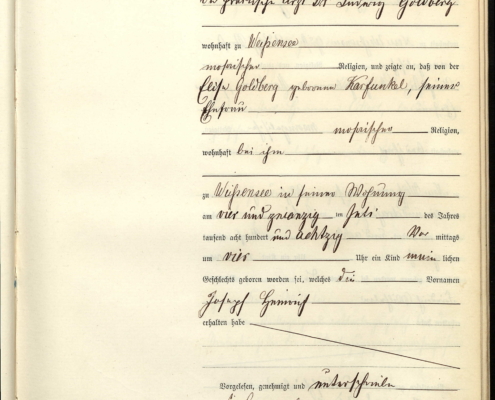 der praktische Arzt Dr Ludwig Goldberg
wohnhaft zu Weißensee
mosaischer Religion, und zeigte an, daß von der
Elise Goldberg geborene Karfunkel, seiner
Ehefrau
mosaischer Religion,
wohnhaft bei ihm
zu Weißensee in seiner Wohnung
am vier und zwanzig ten Juli des Jahres
tausend acht hundert und achtzig Vor mittags
um vier Uhr ein Kind männ lichen
Geschlechts geboren worden sei, welches die Vornamen
Joseph Heinrich
erhalten habe
Vorgelesen, genehmigt und unterschrieben